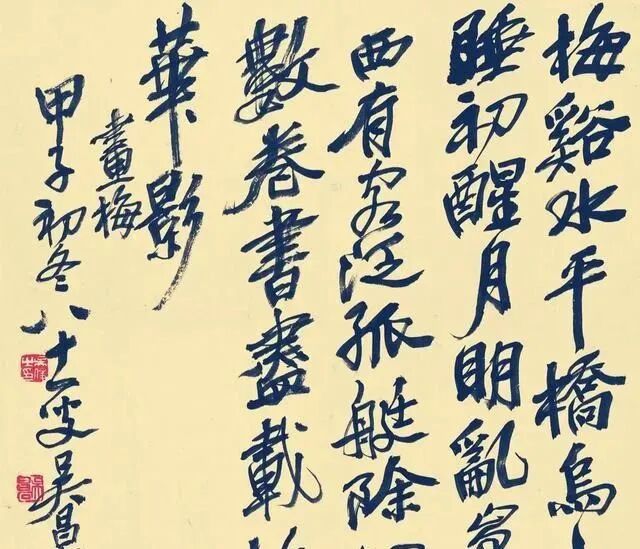 梅谿水平橋烏
睡初醒月明亂
西有客泛孤艇除
數卷書盡載
華影
畫梅
甲子初冬八十一叟吳昌